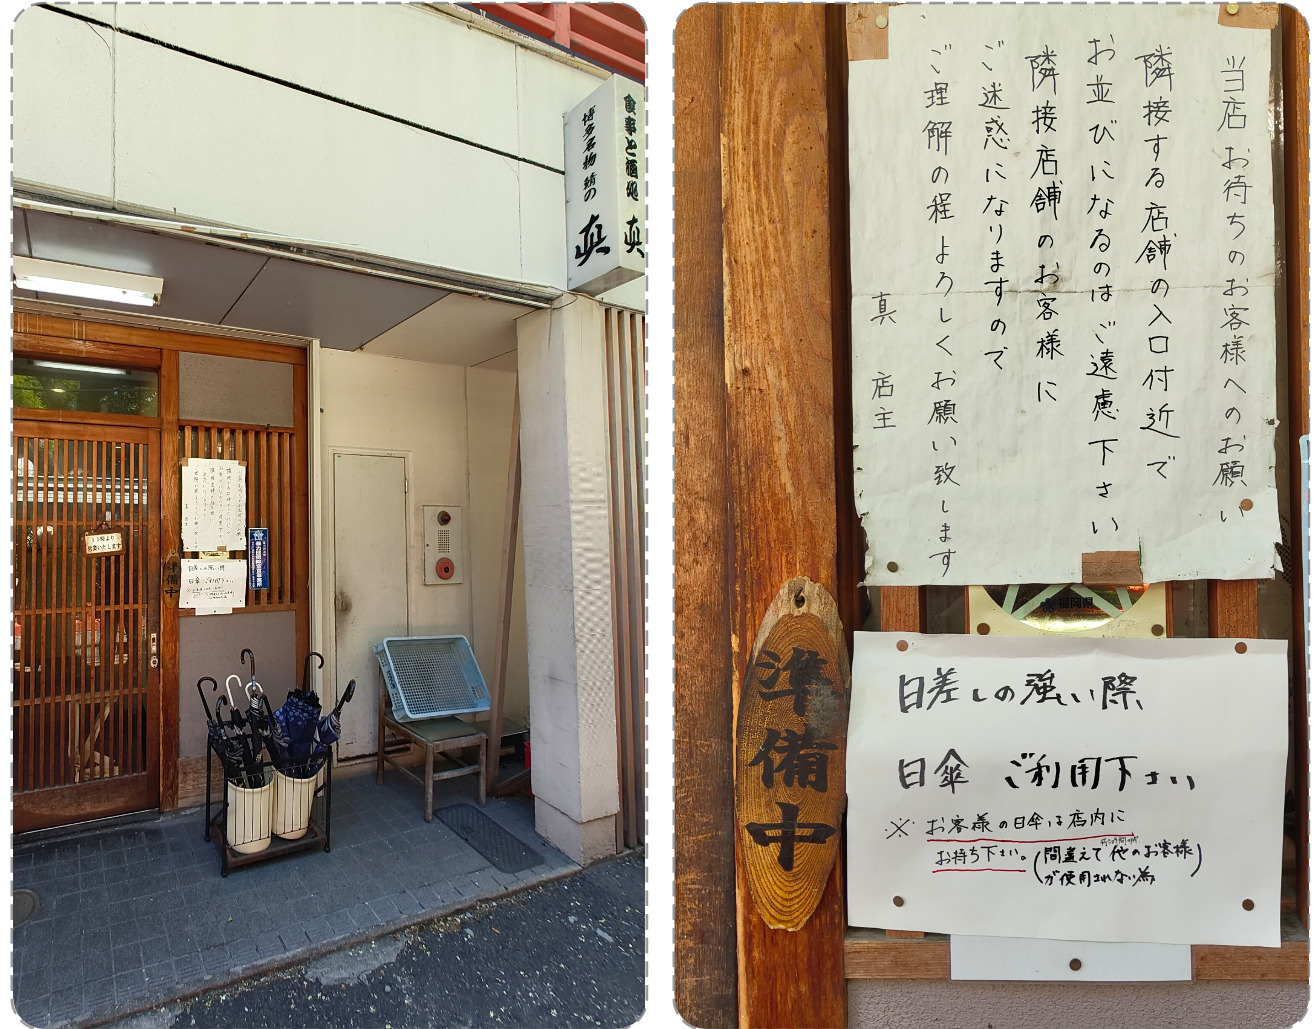 食事と酒処 真
博多名物 鯖の 真
11時より
営業いたします
準備中
当店お待ちのお客様へのお願い
隣接する店舗の入口付近で
お並びになるのはご遠慮下さい
隣接店舗のお客様に
ご迷惑になりますので
ご理解の程よろしくお願い致します
真 店主
福岡県
準備中
日差しの強い際
日傘 ご利用下さい
※お客様の日傘は店内に
お持ち下さい。(間違えて他のお客様
が使用されない為)